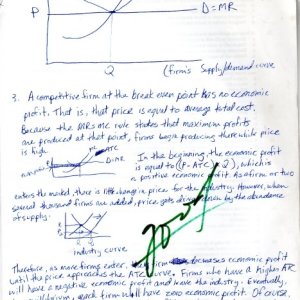 P
D=MR
Q
(firm's supply/demand curve
3. A competitive firm at the break even point has no economic
profit. That is, that price is equal to average total cost.
Because the MR=MC rule states that maximum profits
are produced at that point, firms begin producing there while price
is high.
MC
ATC
D=MR
In the beginning, the economic profit
is equal to ((P-ATC) · Q), which is
a positive economic profit. As a firm or two
enters the market, there is little change in price for the industry. However, when
several thousand firms are added, price gets driven down by the abundance
of supply.
industry curve
Therefore, as more firms enter, firm decreases economic profit
until the price approaches the ATC curve. Firms who have a higher ATC
will have a negative economic profit and leave the industry. Eventually,
equilibrium, each firm will have zero economic profit. Of course,